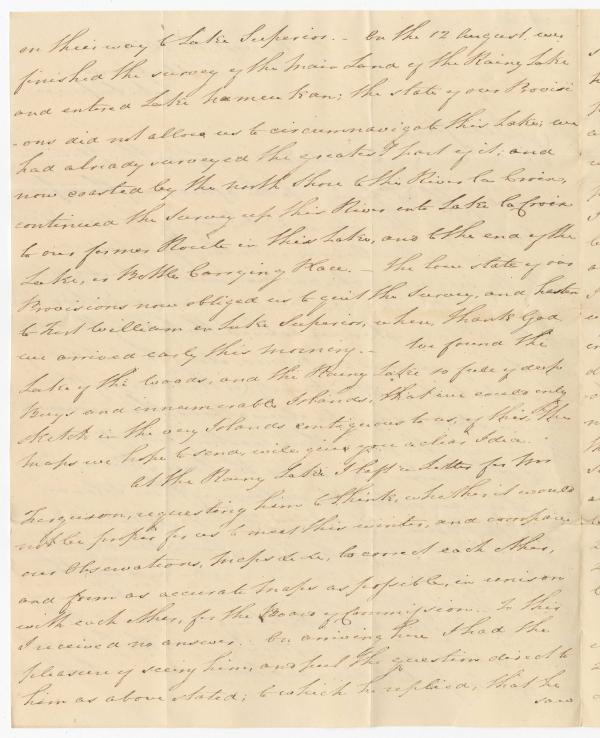 on their way to Lake Superior. – On the 12 August, we
finished the survey of the Main Land of the Rainy Lake
and entered Lake Nameukan; the state of our Provisi
-ons did not allow us to circumnavigate this Lake; we
had already surveyed the greatest part of it; and
now coasted by the north Shore to the River la Croix,
continued the Survey up this River into Lake la Croix
to our former Route in this Lake, and to the end of the
Lake, or Bottle Carrying Place. – the low state of our
Provisions now obliged us to quit the Survey, and hasten
to Fort William on Lake Superior, where, thank God
we arrived early this morning. – We found the
Lake of the Woods, and the Rainy Lake so full of deep
Bays and innumerable Islands, that we could only
sketch in the very Islands contiguous to us; of this, the
Maps we hope to send, will give you a clear Idea.
At the Rainy Lake I left a Letter for Mr
Ferguson, requesting him to think, whether it would
not be proper for us to meet this winter, and compare
our Observations, Maps &c &c, to correct each other,
and form as accurate Maps as possible, in unison
with each other, for the Board of Commission. To this
I received no answer. On arriving here I had the
pleasure of seeing him, and put the question direct to
him as above stated; to which he replied, that he
saw